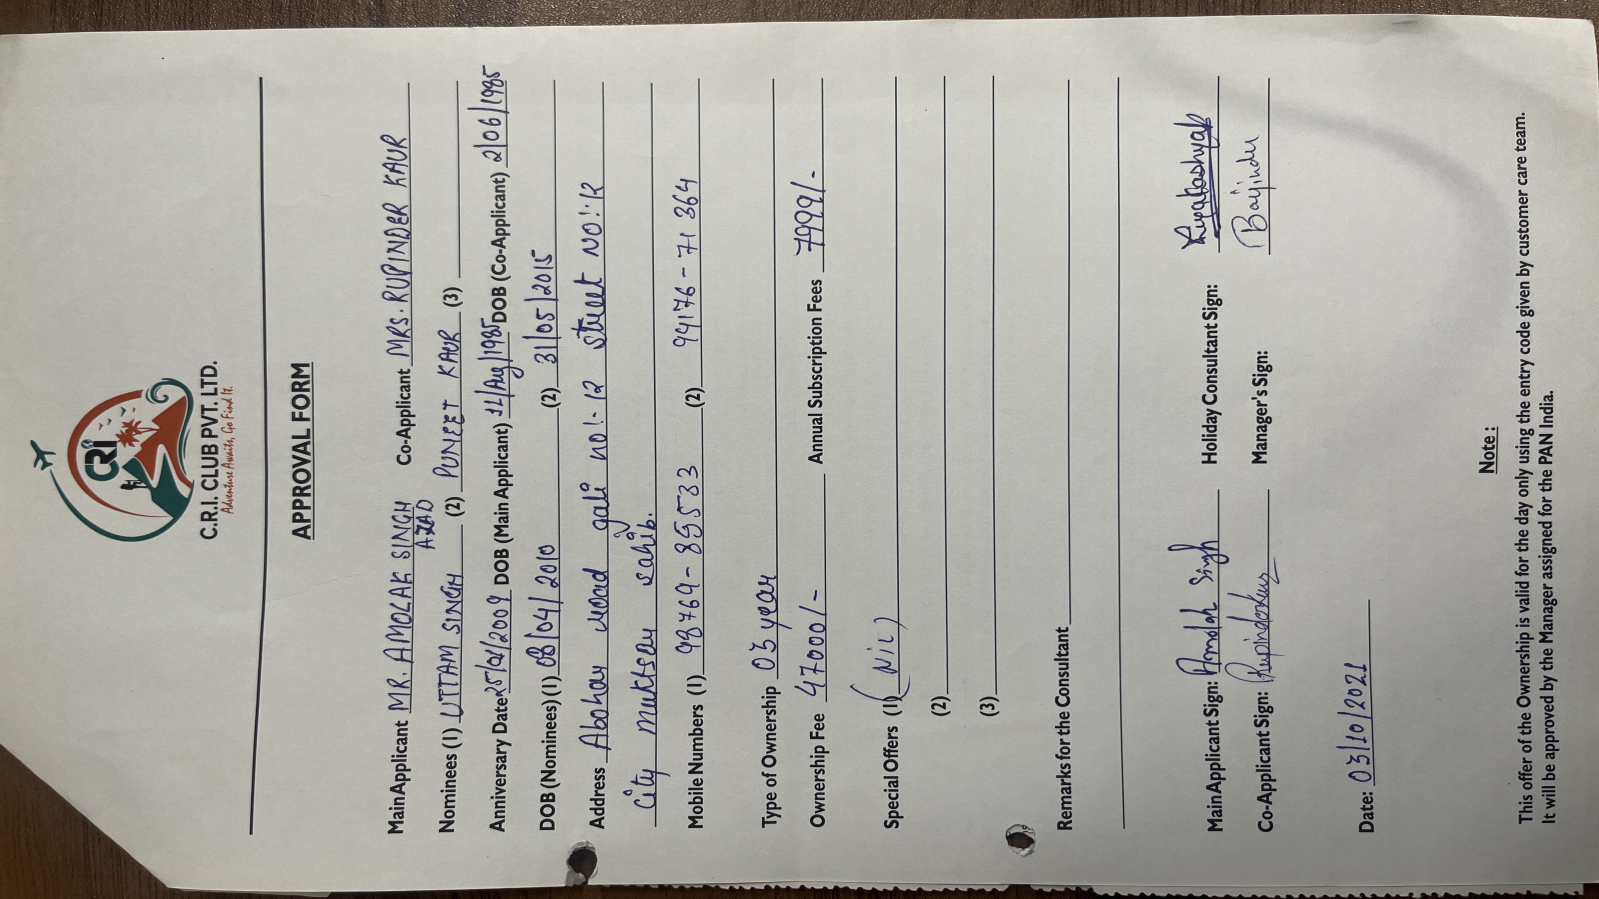 CRI
C.R.I. CLUB PVT. LTD.
Adventure Awaits, Go Find It.
APPROVAL FORM
Main Applicant MR. AMOLAK SINGH AZAD Co-Applicant MRS. RUPINDER KAUR
Nominees (1) UTTAM SINGH (2) PUNEET KAUR (3)
Anniversary Date 25/01/2009 DOB (Main Applicant) 12/Aug/1985 DOB (Co-Applicant) 2/06/1985
DOB (Nominees) (1) 08/04/2010 (2) 31/05/2015
Address Abohar road gali no!- 12 street NO!:12
City muktsar sahib.
Mobile Numbers (1) 98764-85533 (2) 94176-71364
Type of Ownership 03 year
Ownership Fee 47000/- Annual Subscription Fees 7999/-
Special Offers (1) (NIL)
(2)
(3)
Remarks for the Consultant
Main Applicant Sign: Amolak Singh Holiday Consultant Sign:
Co-Applicant Sign: Rupinderkaur Manager's Sign:
Date: 03/10/2021
Note :
This offer of the Ownership is valid for the day only using the entry code given by customer care team.
It will be approved by the Manager assigned for the PAN India.